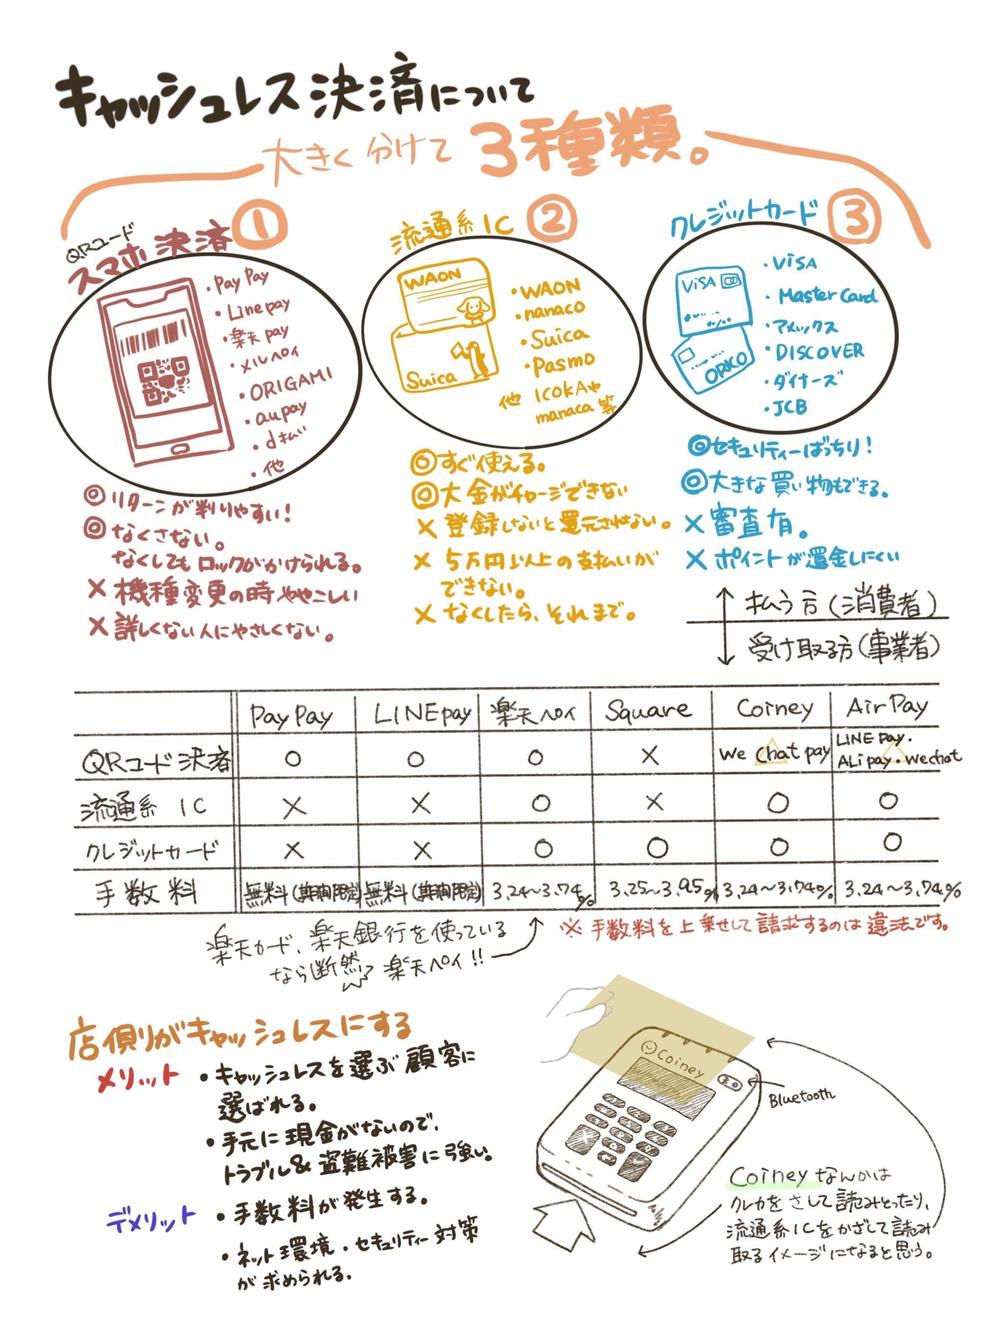 キャッシュレス決済について
大きく分けて3種類。
①
QRコード
スマホ決済
・PayPay
・Linepay
・楽天pay
・メルペイ
・ORIGAMI
・aupay
・d払い
・他
◎リターンが判りやすい！
◎なくさない。
なくしてもロックがかけられる。
×機種変更の時ややこしい
×詳しくない人にやさしくない。
流通系IC ②
WAON
Suica
・WAON
・nanaco
・Suica
・Pasmo
他 ICOKAや
manaca等
◎すぐ使える。
◎大金がチャージできない
×登録しないと還元されない。
×5万円以上の支払いが
できない。
×なくしたら、それまで。
クレジットカード ③
ViSA
ORICO
・ViSA
・MasterCard
・アメックス
・DISCOVER
・ダイナーズ
・JCB
◎セキュリティーばっちり！
◎大きな買い物もできる。
×審査有。
×ポイントが還金しにくい
払う方（消費者）
受け取る方（事業者）
PayPay LINEpay 楽天ペイ Square Coiney AirPay
QRコード決済 ○ ○ ○ × We chat pay LINE Pay・
ALipay・wechat
流通系IC × × ○ × ○ ○
クレジットカード × × ○ ○ ○ ○
手数料 無料（期間限定） 無料（期間限定） 3.24～3.74% 3.25～3.95% 3.24～3.74% 3.24～3.74%
楽天カード、楽天銀行を使っている
なら断然 楽天ペイ！！
※手数料を上乗せして請求するのは違法です。
店側がキャッシュレスにする
メリット
・キャッシュレスを選ぶ顧客に
選ばれる。
・手元に現金がないので、
トラブル&盗難被害に強い。
デメリット
・手数料が発生する。
・ネット環境・セキュリティー対策
が求められる。
Coiney
Bluetooth
Coineyなんかは
クレカをさして読みとったり、
流通系ICをかざして読み
取るイメージになると思う。